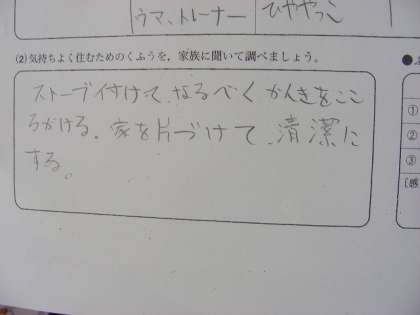 ウマ、トレーナー
ひややっこ
(2)気持ちよく住むためのくふうを、家族に聞いて調べましょう。
ストーブ付けて、なるべくかんきをここ
ろがける。家を片づけて、清潔に
する。
①
②
③
〔感